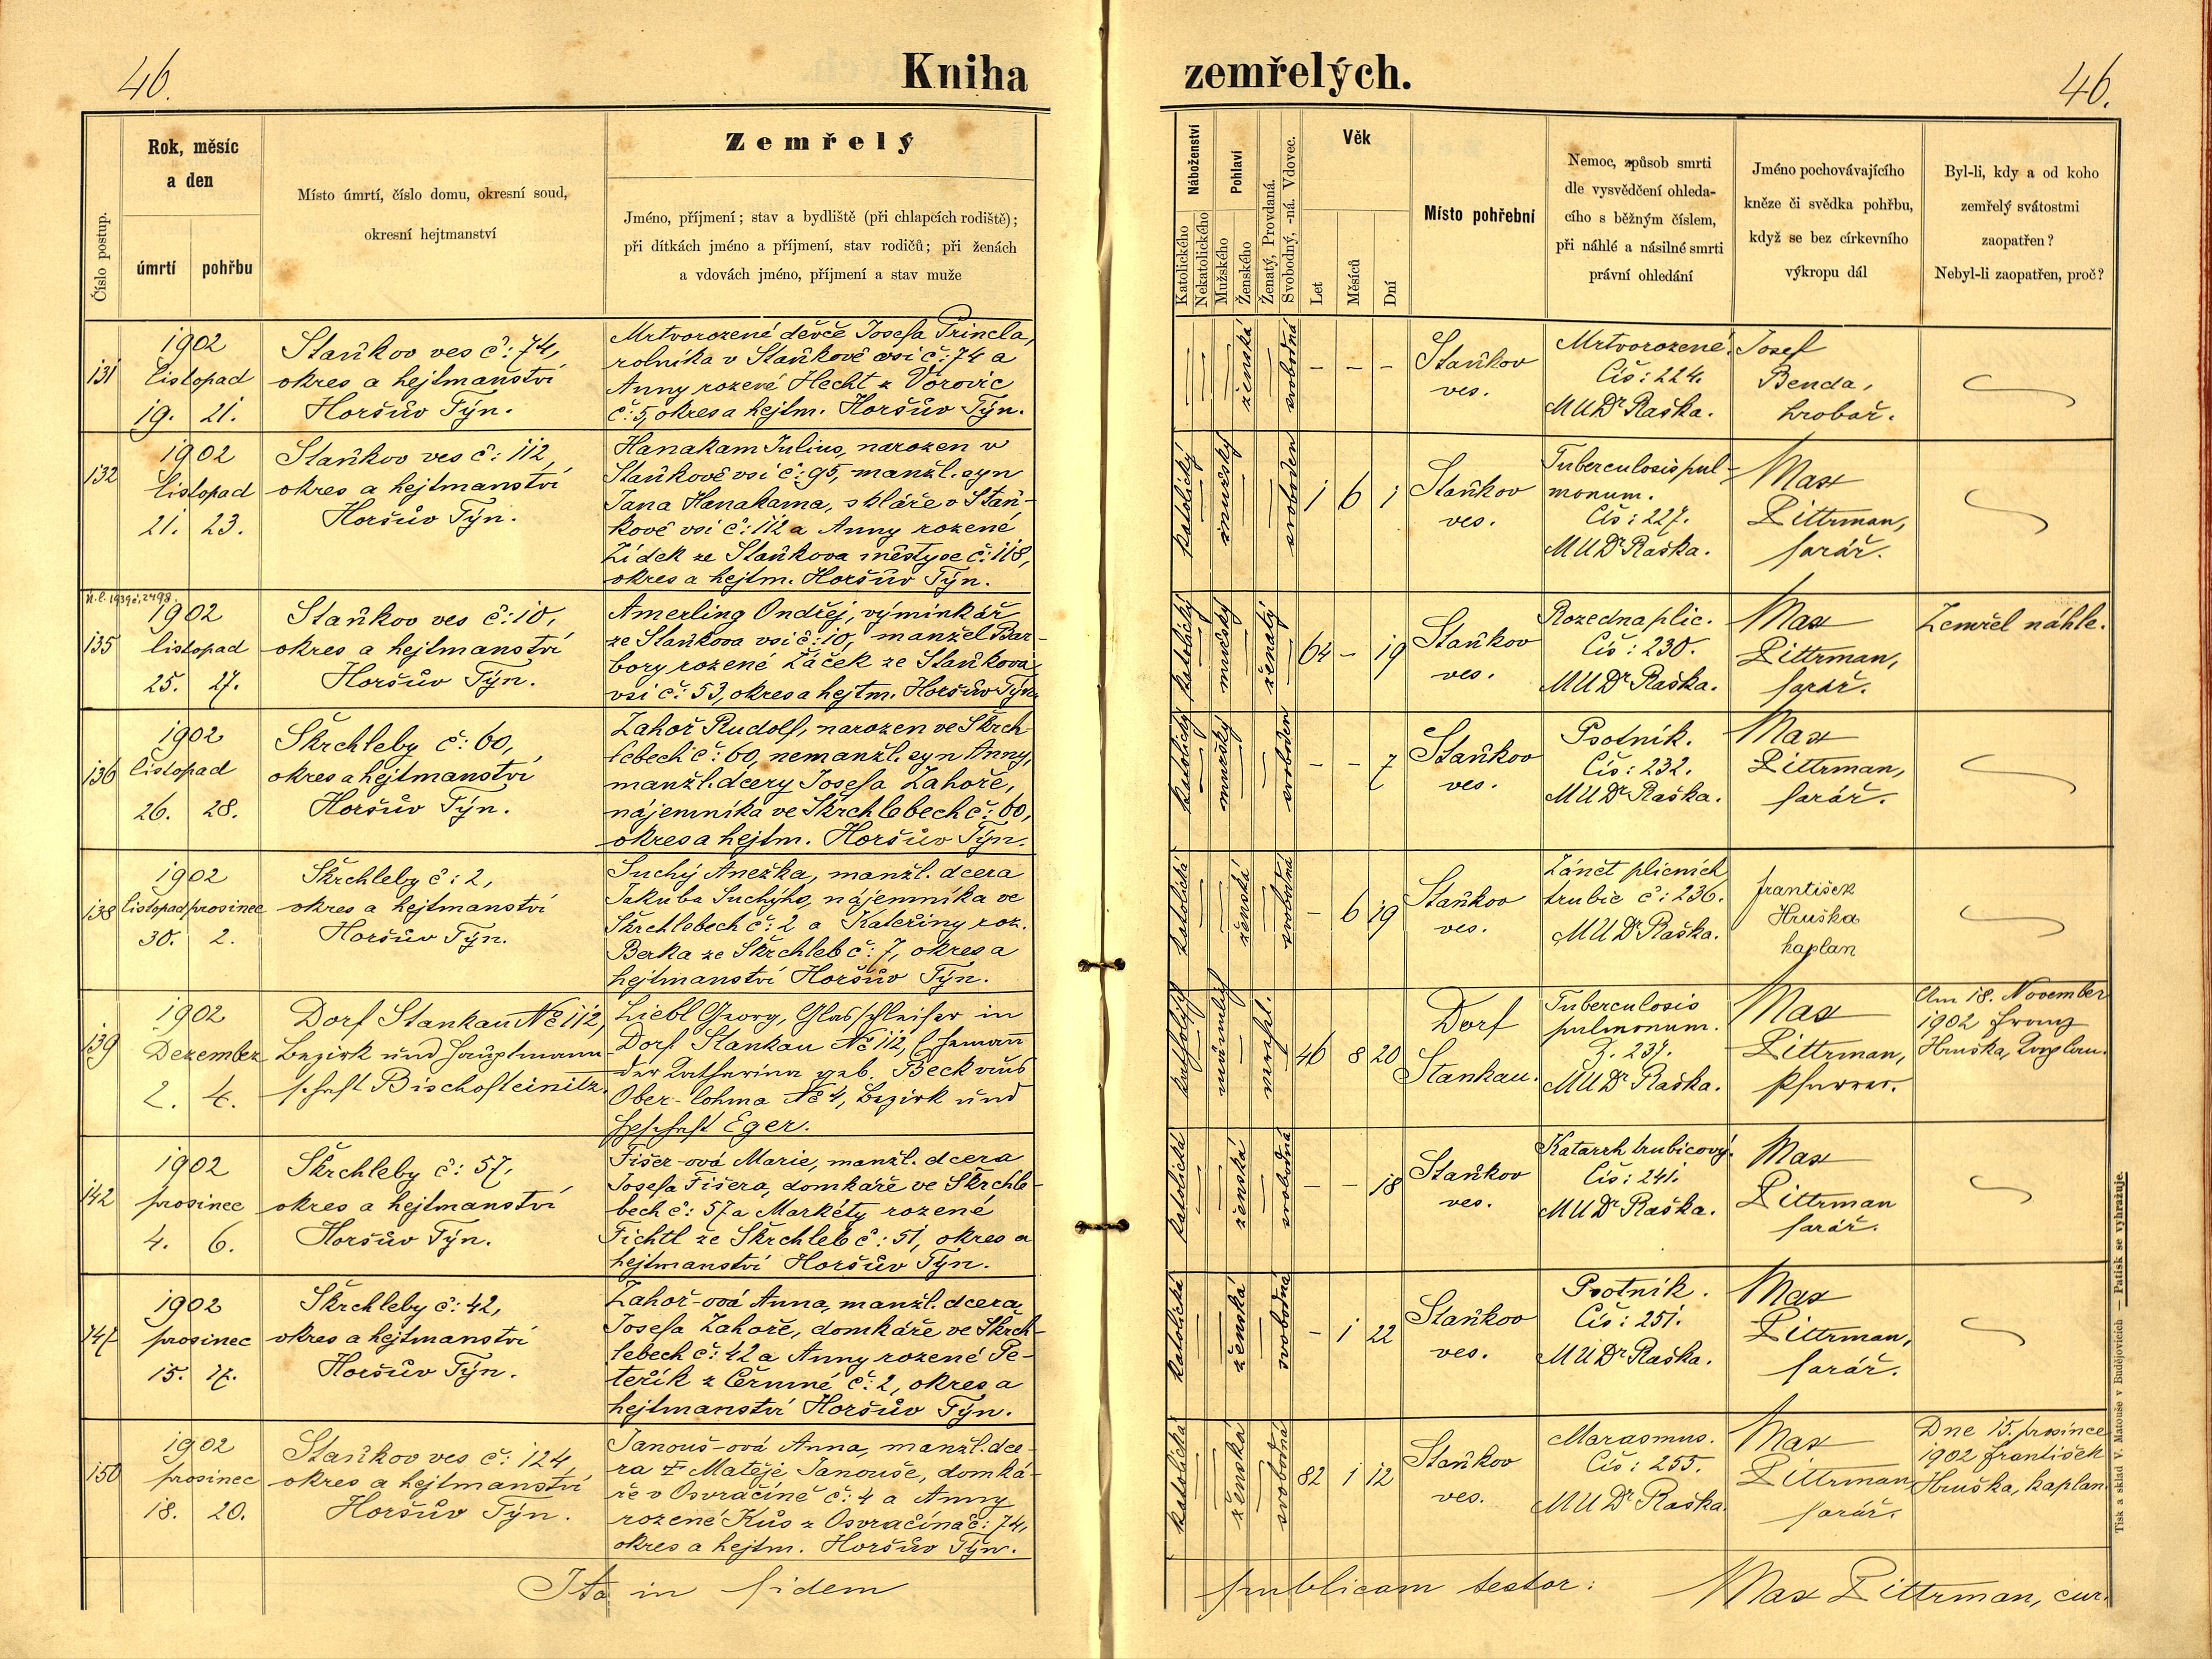 46.
Kniha
zemřelých.
46.
Číslo postup.
Rok, měsíc
a den
úmrtí
pohřbu
Místo úmrtí, číslo domu, okresní soud,
okresní hejtmanství
Zemřelý
Jméno, příjmení; stav a bydliště (při chlapcích rodiště);
při dítkách jméno a příjmení, stav rodičů; při ženách
a vdovách jméno, příjmení a stav muže
Náboženství
Katolického
Nekatolického
Pohlaví
Mužského
Ženského
Ženatý, Provdaná.
Svobodný, -ná. Vdovec.
Věk
Let
Měsíců
Dní
Místo pohřební
Nemoc, způsob smrti
dle vysvědčení ohleda-
cího s běžným číslem,
při náhlé a násilné smrti
právní ohledání
Jméno pochovávajícího
kněze či svědka pohřbu,
když se bez církevního
výkropu dál
Byl-li, kdy a od koho
zemřelý svátostmi
zaopatřen?
Nebyl-li zaopatřen, proč?
131
1902
listopad
19. 21.
Staňkov ves č: 74,
okres a hejtmanství
Horšův Týn.
Mrtvorozené děvče Josefa Princla,
rolníka v Staňkově vsi č: 74 a
Anny rozené Hecht z Vorovic
č: 5, okres a hejtm. Horšův Týn.
ženská
svobodná
– – –
Staňkov
ves.
Mrtvorozené.
Čís: 224.
MUDr Raška.
Josef
Benda,
hrobař.
132
1902
listopad
21. 23.
Staňkov ves č: 112,
okres a hejtmanství
Horšův Týn.
Hanakam Julius, narozen v
Staňkově vsi č: 95, manžl. syn
Jana Hanakama, skláře v Staň-
kově vsi č: 112 a Anny rozené
Zídek ze Staňkova městyse č: 118,
okres a hejtm. Horšův Týn.
katolický
mužský
svoboden
1 6 1
Staňkov
ves.
Tuberculosis pul-
monum.
Čís: 227.
MUDr Raška.
Max
Littrman,
farář.
N.l. 1939 č. 2498.
135
1902
listopad
25. 27.
Staňkov ves č: 10,
okres a hejtmanství
Horšův Týn.
Amerling Ondřej, výminkář
ze Staňkova vsi č: 10, manžel Bar-
bory rozené Žáček ze Staňkova
vsi č: 53, okres a hejtm. Horšův Týn.
katolický
mužský
ženatý
64 – 19
Staňkov
ves.
Rozedna plic.
Čís: 230.
MUDr Raška.
Max
Littrman,
farář.
Zemřel náhle.
136
1902
listopad
26. 28.
Škrchleby č: 60,
okres a hejtmanství
Horšův Týn.
Zahoř Rudolf, narozen ve Škrch-
lebech č: 60, nemanžl. syn Anny,
manžl. dcery Josefa Zahoře,
nájemníka ve Škrchlebech č: 60,
okres a hejtm. Horšův Týn.
katolický
mužský
svoboden
– – 7
Staňkov
ves.
Psotník.
Čís: 232.
MUDr Raška.
Max
Littrman,
farář.
138
1902
listopad prosinec
30. 2.
Škrchleby č: 2,
okres a hejtmanství
Horšův Týn.
Suchý Anežka, manžl. dcera
Jakuba Suchýho, nájemníka ve
Škrchlebech č: 2 a Kateřiny roz.
Berka ze Škrchleb č: 7, okres a
hejtmanství Horšův Týn.
katolická
ženská
svobodná
– 6 19
Staňkov
ves.
Zánět plicních
trubic č: 236.
MUDr Raška.
František
Hruška
kaplan
139
1902
Dezember
2. 4.
Dorf Stankau No 112,
Bezirk und Hauptmann-
schaft Bischofteinitz.
Liebl Georg, Glasschleifer in
Dorf Stankau No 112, Ehemann
der Katharina geb. Beck aus
Ober-lohma No 4, Bezirk und
Hptschaft Eger.
katholisch
männlich
verehl.
46 8 20
Dorf
Stankau.
Tuberculosis
pulmonum.
Z. 237.
MUDr Raška.
Max
Littrman,
Pfarrer.
Am 18. November
1902 Franz
Hruška, Kaplan.
142
1902
prosinec
4. 6.
Škrchleby č: 57,
okres a hejtmanství
Horšův Týn.
Fišer-ová Marie, manžl. dcera
Josefa Fišera, domkáře ve Škrchle-
bech č: 57 a Markéty rozené
Fichtl ze Škrchleb č: 51, okres a
hejtmanství Horšův Týn.
katolická
ženská
svobodná
– – 18
Staňkov
ves.
Katarrh trubicový.
Čís: 241.
MUDr Raška.
Max
Littrman
farář.
147
1902
prosinec
15. 17.
Škrchleby č: 42,
okres a hejtmanství
Horšův Týn.
Zahoř-ová Anna, manžl. dcera
Josefa Zahoře, domkáře ve Škrch-
lebech č: 42 a Anny rozené Pe-
teřík z Čermné č: 2, okres a
hejtmanství Horšův Týn.
katolická
ženská
svobodná
– 1 22
Staňkov
ves.
Psotník.
Čís: 251.
MUDr Raška.
Max
Littrman,
farář.
150
1902
prosinec
18. 20.
Staňkov ves č: 124,
okres a hejtmanství
Horšův Týn.
Janouš-ová Anna, manžl. dce-
ra Matěje Janouše, domká-
ře v Osvračíně č: 4 a Anny
rozené Kůs z Osvračína č: 74,
okres a hejtm. Horšův Týn.
katolická
ženská
svobodná
82 1 12
Staňkov
ves.
Marasmus.
Čís: 255.
MUDr Raška.
Max
Littrman
farář.
Dne 15. prosince
1902 František
Hruška, kaplan
Ita in fidem
publicam testor:
Max Littrman, cur.
Tisk a sklad V. Matouše v Budějovicích — Patisk se vyhražuje.